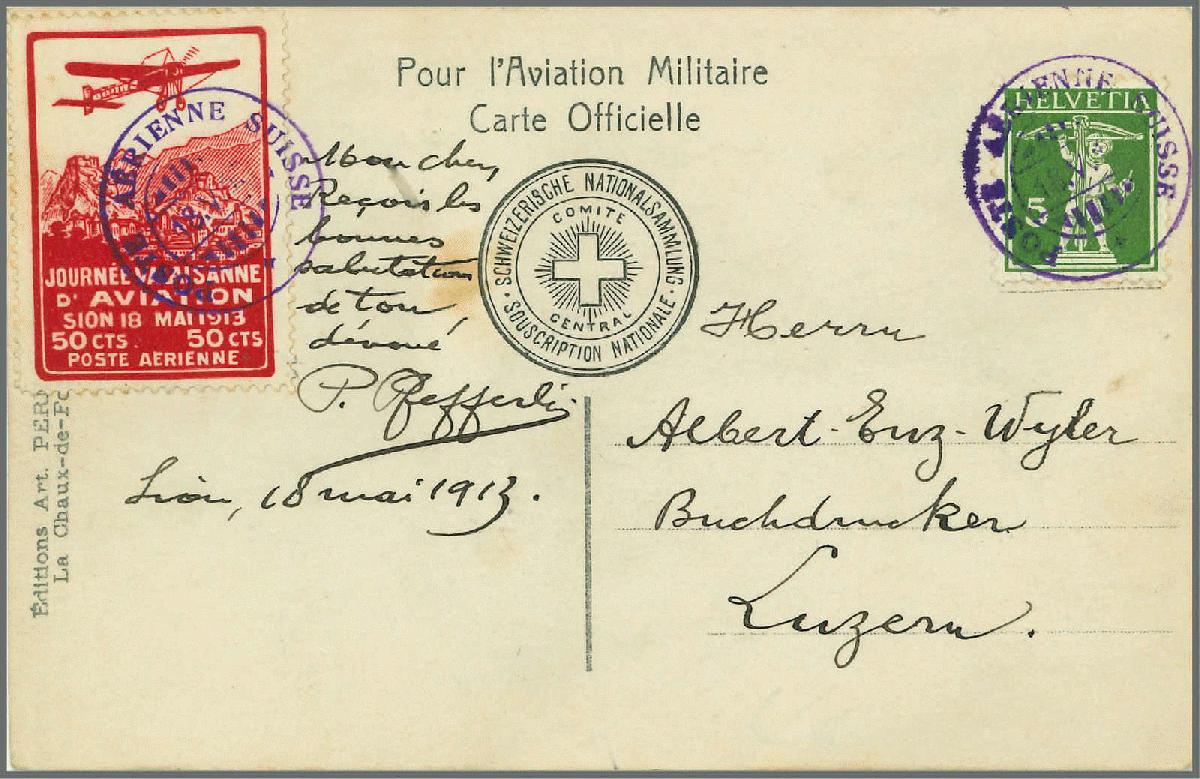 Pour l'Aviation Militaire
Carte Officielle
JOURNÉE VALAISANNE
D'AVIATION
SION 18 MAI 1913
50 CTS. 50 CTS
POSTE AÉRIENNE
POSTE AÉRIENNE SUISSE
18.V.
Mon cher,
Reçois les
bonnes
salutations
de ton
dévoué
P. Pfefferlé
Sion, 18 mai 1913.
SCHWEIZERISCHE NATIONALSAMMLUNG
COMITE
CENTRAL
SOUSCRIPTION NATIONALE
POSTE AÉRIENNE SUISSE
HELVETIA
5
Herrn
Albert-Enz-Wyler
Buchdrucker
Luzern.
Éditions Art.
La Chaux-de-